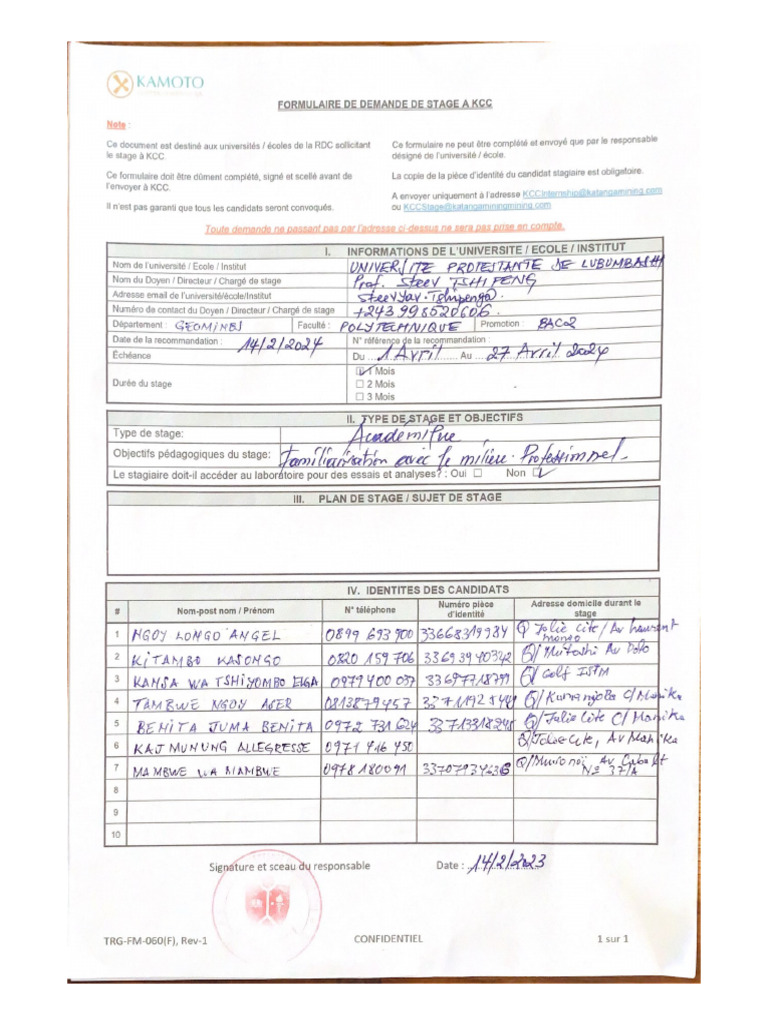 KAMOTO
FORMULAIRE DE DEMANDE DE STAGE A KCC
Note :
Ce document est destiné aux universités / écoles de la RDC sollicitant
le stage à KCC.
Ce formulaire doit être dûment complété, signé et scellé avant de
l'envoyer à KCC.
Il n'est pas garanti que tous les candidats seront convoqués.
Ce formulaire ne peut être complété et envoyé que par le responsable
désigné de l'université / école.
La copie de la pièce d'identité du candidat stagiaire est obligatoire.
A envoyer uniquement à l'adresse KCCInternship@katangamining.com
ou KCCStage@katangaminingmining.com
Toute demande ne passant pas par l'adresse ci dessus ne sera pas prise en compte.
I. INFORMATIONS DE L'UNIVERSITE / ECOLE / INSTITUT
Nom de l'université / Ecole / Institut UNIVERSITE PROTESTANTE DE LUBUMBASHI
Nom du Doyen / Directeur / Chargé de stage Prof. Steev TSHIPENG
Adresse email de l'université/école/Institut Steevyav.Tshipenga
Numéro de contact du Doyen / Directeur / Chargé de stage +243 998520606.
Département : GEOMINES Faculté : POLYTECHNIQUE Promotion : BAC02
Date de la recommandation : 14/2/2024 N° référence de la recommandation :
Échéance Du 1 Avril Au 27 Avril 2024
Durée du stage
1 Mois
2 Mois
3 Mois
II. TYPE DE STAGE ET OBJECTIFS
Type de stage: Académique
Objectifs pédagogiques du stage: Familiarisation avec le milieu Professionnel.
Le stagiaire doit-il accéder au laboratoire pour des essais et analyses? : Oui Non
III. PLAN DE STAGE / SUJET DE STAGE
IV. IDENTITES DES CANDIDATS
# Nom-post nom / Prénom N° téléphone Numéro pièce d'identité Adresse domicile durant le stage
1 NGOY LONGO ANGEL 0899 693 900 33668319984 Q Jolie Cite / Av
2 KITAMBO KASONGO 0820 159 706 33693940342 Q/ Mutoshi Av
3 KANSA WA TSHIYOMBO 0979 400 037 Q/ Golf ISTM
4 TAMBWE NGOY ASER 0813879457 Q/ C/ Manika
5 BENITA JUMA BENITA 0972 731 624 33713318248 Q/ Jolie Cite C/ Manika
6 KAJ MUNUNG ALLEGRESSE 0971 416 450 Q/ Jolie Cite, Av Manika
7 MAMBWE WA MAMBWE 0978180091 Q/ Av
N° 37/A
8
9
10
Signature et sceau du responsable Date : 14/2/2023
TRG-FM-060(F), Rev-1 CONFIDENTIEL 1 sur 1